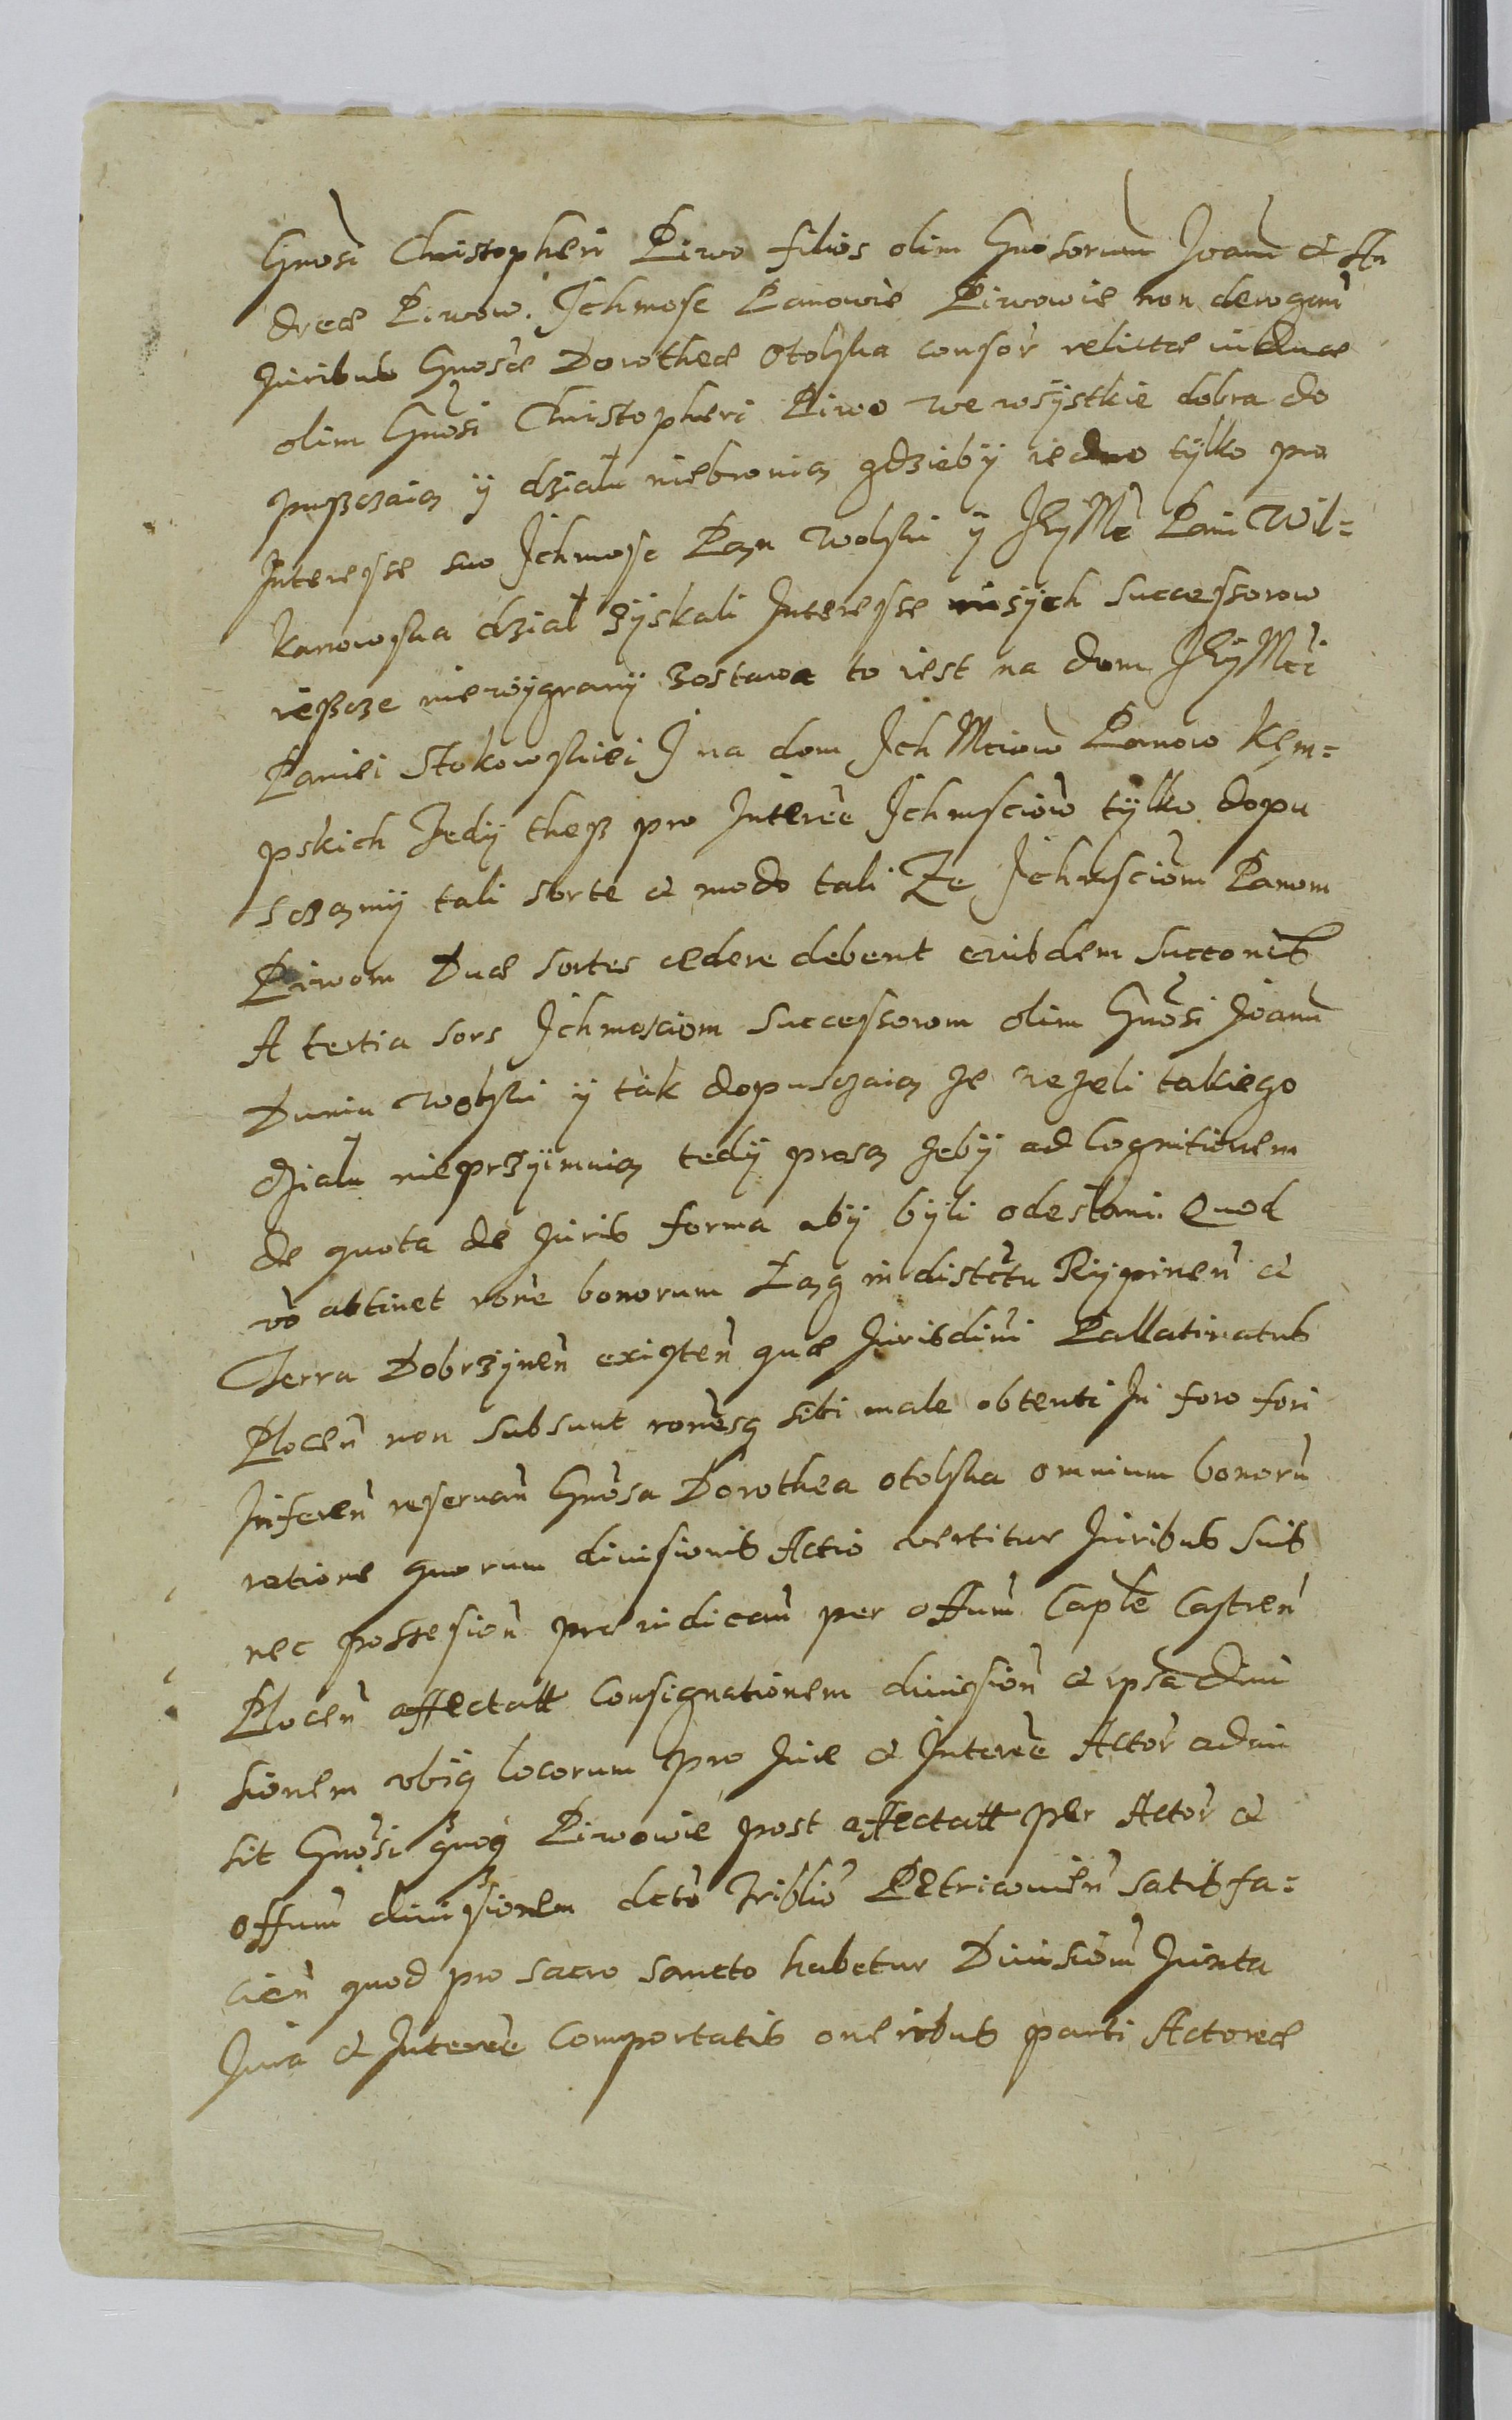 Gnosi Christopheri Piwo filios olim Gnosorum Joann et An
dreæ Piwow. Ichmosc Panowie Piwowie non derogan
Juribus Gnosæ Dorotheæ Otolska consor relictæ viduæ
olim Gnosi Christopheri Piwo we wsÿstkie dobra do
pußczaią ÿ działu niebronią gdziebÿ iedno tÿlko pro
Interesse suo Ichmosc Pan Wolski ÿ JEÿMc Pani Wil=
kanowska dział zÿskali Interesse insÿch successorow
ießcze niewÿgranÿ zostawa to iest na dom JEÿMci
Paniei Stokowskiei J na dom Ich Mciow Panow Kęm=
pskich Tedÿ theß pro Interee Ichmsciow tÿlko dopu
sczamÿ tali sorte et modo tali Ze Ichmsciom Panom
Piwom Duæ sortes cedere debent eiusdem Success
A tertia sors Ichmosciom Successorom olim Gnosi Joann
Dunin Wolski ÿ tak dopusczaią że ieżeli takiego
działu nieprzÿimuią tedÿ proszą żebÿ ad Cognitionem
de quota de Juris forma abÿ bÿli odesłani. Quod
vo attinet rone bonorum Łąg in distctu Rÿpinen et
Terra Dobrzÿnen existen quæ Jurisdini Pallatinatus
Plocen non subsunt ronesq sibi male obtenti In foro fori
Inferen reseruan Gnosa Dorothea Otolska omnium bonoru
ratione quorum diuisionis Actio vertitur Juribus suis
nec possesion præiudican per offum Caple Castren
Plocen affectatt Consignationem diuision et ipsa diui
sionem vbiq locorum pro Jure et Interee Actor admi
sit Gnosi quoq Piwowie post affectatt per Actor et
offum diuisionem dcto Triblio Petricouien satisfa=
cien quod pro sacro sancto habetur Diuision Juxta
Jura et Interee Comportatis oneribus parti Actoreæ